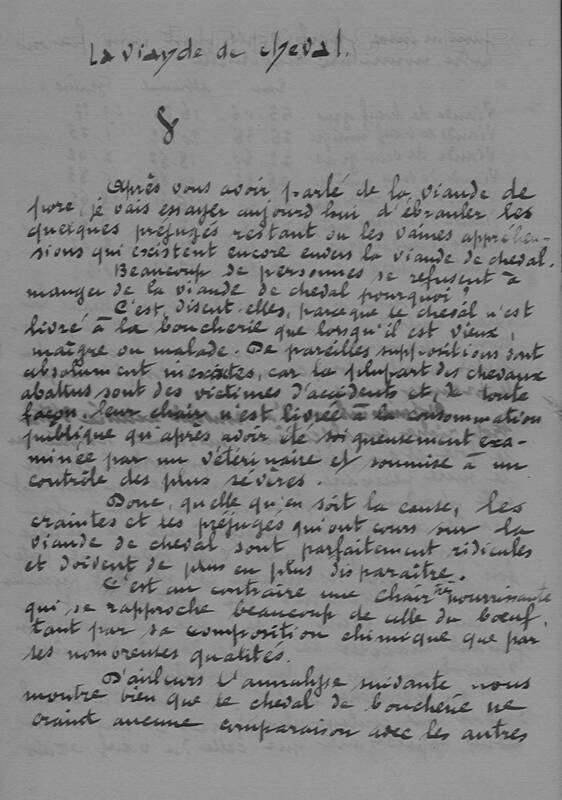 La viande de cheval.
8
Après vous avoir parlé de la viande de
porc je vais essayer aujourd'hui d'ébranler les
quelques préjugés restant ou les vaines appréhen-
sions qui existent encore envers la viande de cheval.
Beaucoup de personnes se refusent à
manger de la viande de cheval pourquoi?
C'est, disent-elles, parce que le cheval n'est
livré à la boucherie que lorsqu'il est vieux,
maigre ou malade. De pareilles suppositions sont
absolument inexactes, car la plupart des chevaux
abattus sont des victimes d'accidents et, de toute
façon, leur chair n'est livrée à la consommation
publique qu'après avoir été soigneusement exa-
minée par un vétérinaire et soumise à un
contrôle des plus sévères.
Donc, quelle qu'en soit la cause, les
craintes et les préjugés qui ont cours sur la
viande de cheval sont parfaitement ridicules
et doivent de plus en plus disparaître.
C'est au contraire une chair très nourrissante
qui se rapproche beaucoup de celle du boeuf,
tant par sa composition chimique que par
ses nombreuses qualités.
D'ailleurs l'annalyse suivante nous
montre bien que le cheval de boucherie ne
craint aucune comparaison avec les autres